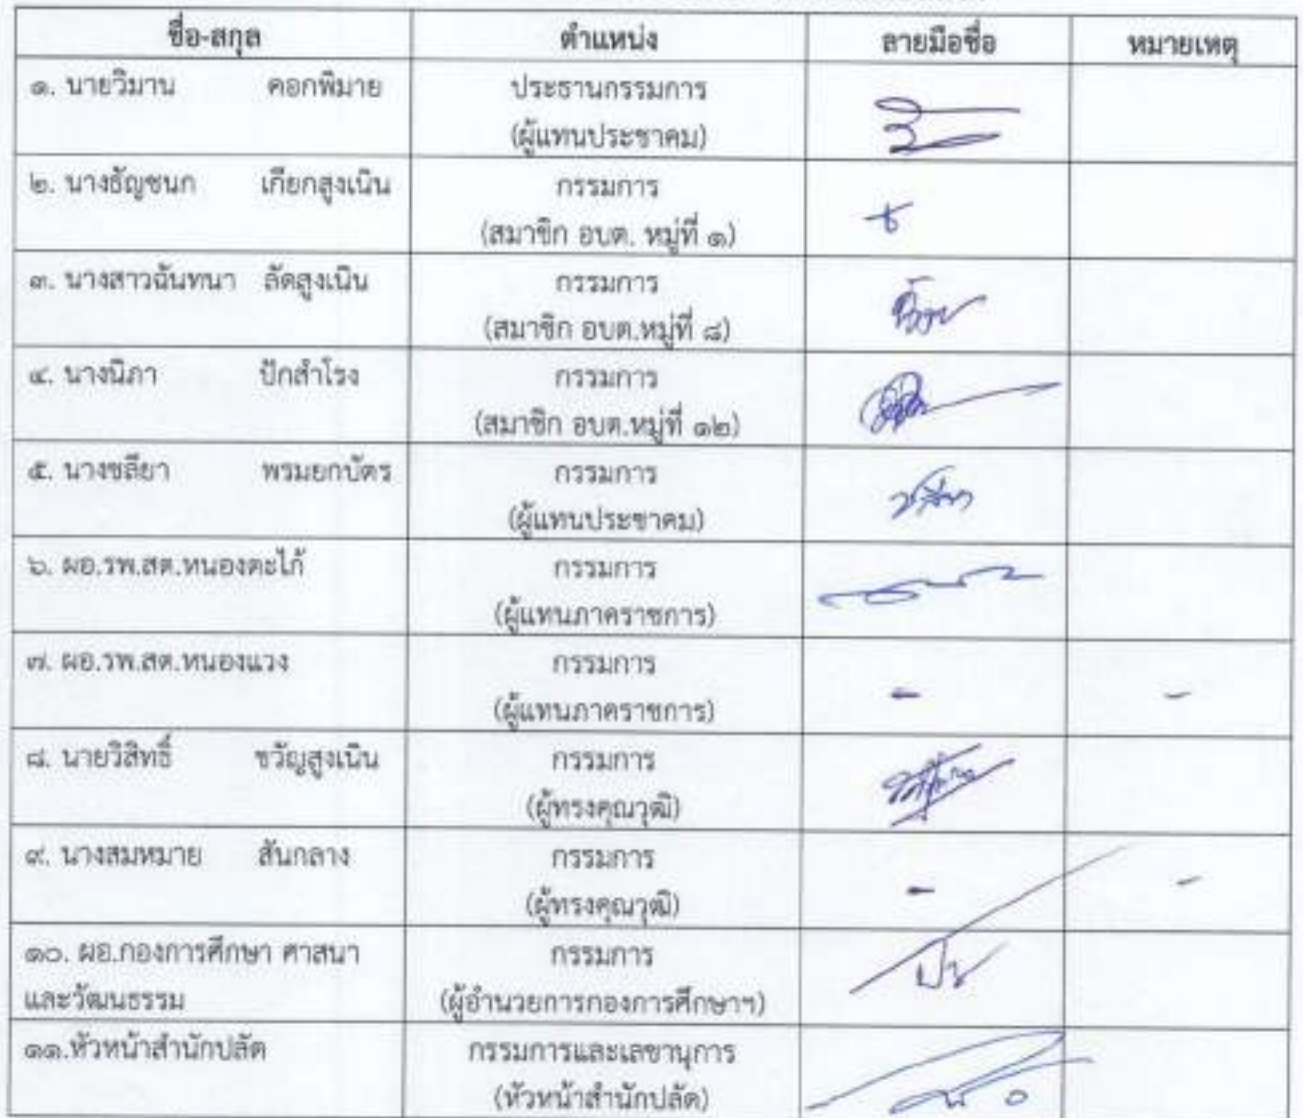 ชื่อ-สกุล ตำแหน่ง ลายมือชื่อ หมายเหตุ
๑. นายวิมาน คอกพิมาย ประธานกรรมการ
(ผู้แทนประชาคม)
๒. นางธัญชนก เกียกสูงเนิน กรรมการ
(สมาชิก อบต. หมู่ที่ ๑)
๓. นางสาวฉันทนา ลัดสูงเนิน กรรมการ
(สมาชิก อบต.หมู่ที่ ๘)
๔. นางนิภา ปักสำโรง กรรมการ
(สมาชิก อบต.หมู่ที่ ๑๒)
๕. นางชลียา พรมยกบัตร กรรมการ
(ผู้แทนประชาคม)
๖. ผอ.รพ.สต.หนองตะไก้ กรรมการ
(ผู้แทนภาคราชการ)
๗. ผอ.รพ.สต.หนองแวง กรรมการ
(ผู้แทนภาคราชการ) - -
๘. นายวิสิทธิ์ ขวัญสูงเนิน กรรมการ
(ผู้ทรงคุณวุฒิ)
๙. นางสมหมาย สันกลาง กรรมการ
(ผู้ทรงคุณวุฒิ) - -
๑๐. ผอ.กองการศึกษา ศาสนา กรรมการ
และวัฒนธรรม (ผู้อำนวยการกองการศึกษาฯ)
๑๑.หัวหน้าสำนักปลัด กรรมการและเลขานุการ
(หัวหน้าสำนักปลัด)